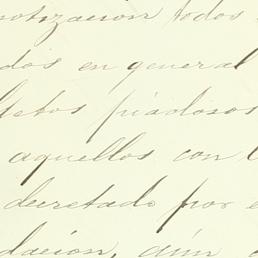 otizacion todos
dos en general
jetos piadosos
aquellos con
decretado por e
dacion, aún